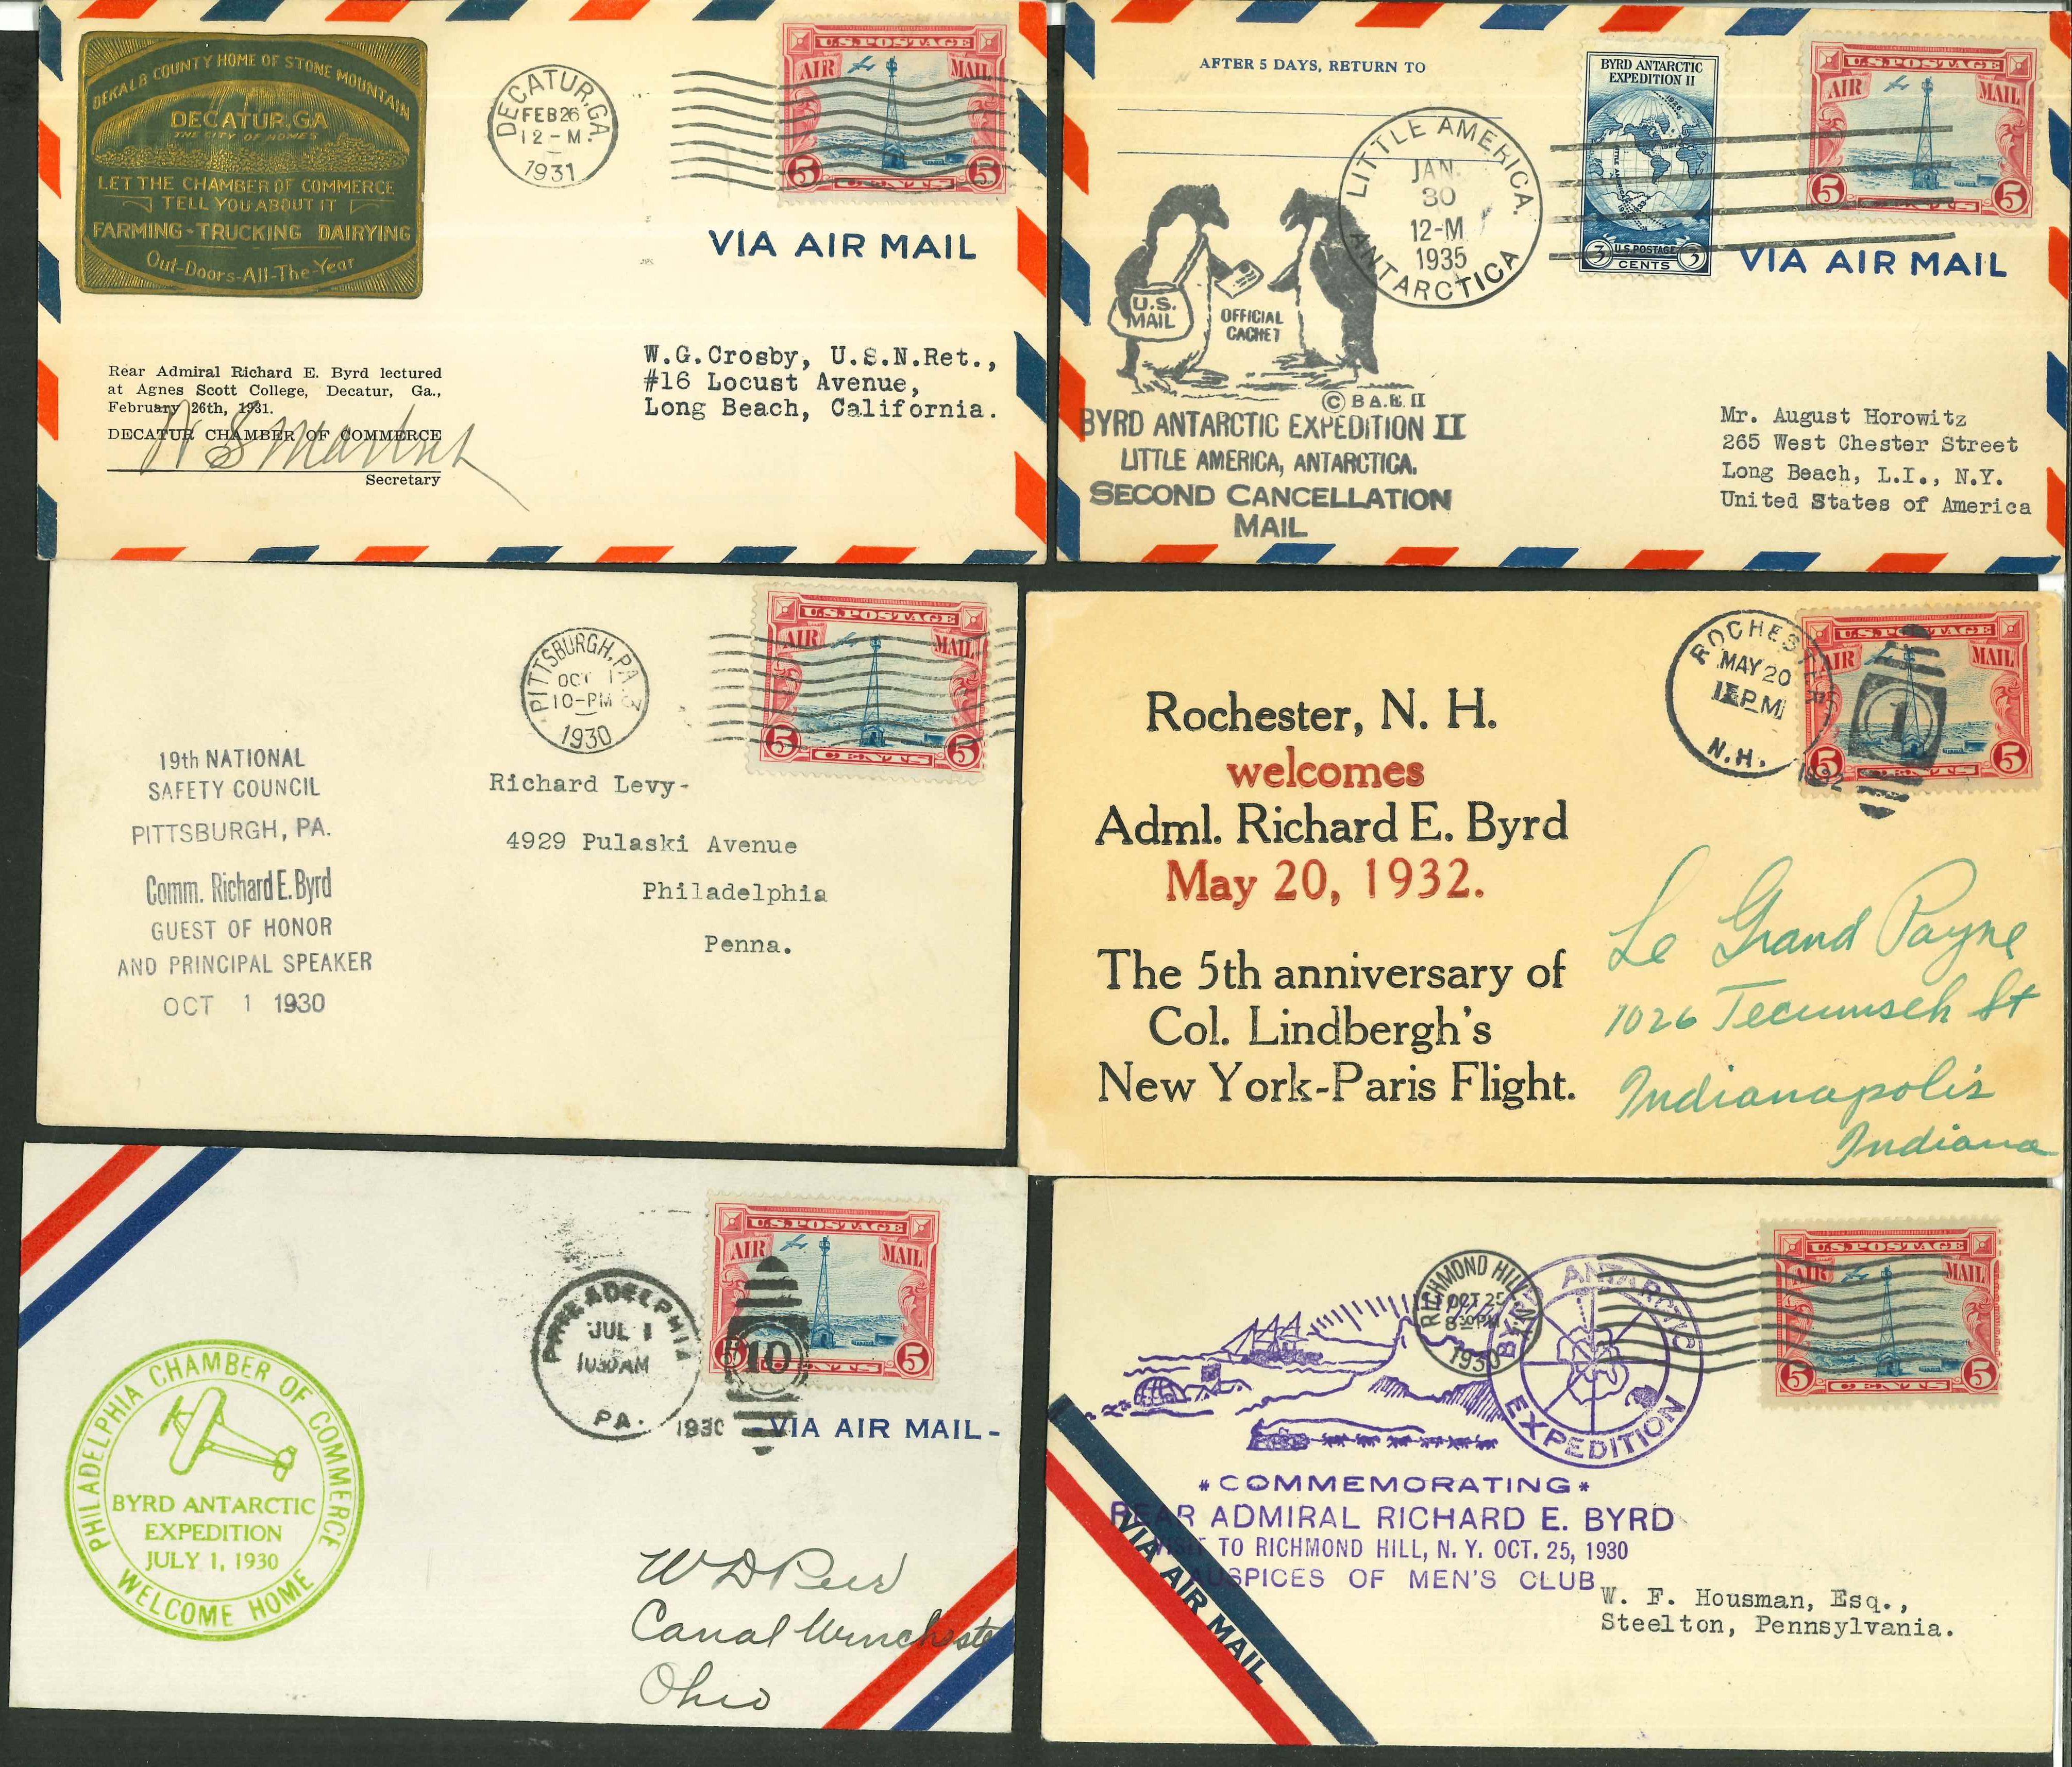 DEKALB COUNTY HOME OF STONE MOUNTAIN
DECATUR, GA
THE CITY OF HOMES
LET THE CHAMBER OF COMMERCE
TELL YOU ABOUT IT
FARMING - TRUCKING DAIRYING
Out-Doors-All-The-Year
DECATUR, GA.
FEB 26
12 - M.
1931
U.S. POSTAGE
AIR MAIL
5 CENTS 5
VIA AIR MAIL
Rear Admiral Richard E. Byrd lectured
at Agnes Scott College, Decatur, Ga.,
February 26th, 1931.
DECATUR CHAMBER OF COMMERCE
Secretary
W.G.Crosby, U.S.N.Ret.,
#16 Locust Avenue,
Long Beach, California.
AFTER 5 DAYS, RETURN TO
LITTLE AMERICA.
JAN.
30
12-M
1935
ANTARCTICA
BYRD ANTARCTIC
EXPEDITION II
3 U.S. POSTAGE 3
CENTS
U.S. POSTAGE
AIR MAIL
5 CENTS 5
VIA AIR MAIL
U.S.
MAIL
OFFICIAL
CACHET
© B.A.E. II
BYRD ANTARCTIC EXPEDITION II
LITTLE AMERICA, ANTARCTICA.
SECOND CANCELLATION
MAIL
Mr. August Horowitz
265 West Chester Street
Long Beach, L.I., N.Y.
United States of America
PITTSBURGH, PA.
OCT 1
10-PM
1930
U.S. POSTAGE
AIR MAIL
5 CENTS 5
19th NATIONAL
SAFETY COUNCIL
PITTSBURGH, PA.
Comm. Richard E. Byrd
GUEST OF HONOR
AND PRINCIPAL SPEAKER
OCT 1 1930
Richard Levy-
4929 Pulaski Avenue
Philadelphia
Penna.
ROCHESTER
MAY 20
PM
N.H.
1932
1
U.S. POSTAGE
AIR MAIL
5 CENTS 5
Rochester, N. H.
welcomes
Adml. Richard E. Byrd
May 20, 1932.
The 5th anniversary of
Col. Lindbergh's
New York-Paris Flight.
Le Grand Payne
1026 Tecumseh St
Indianapolis
Indiana
PHILADELPHIA
JUL 1
1030 AM
PA.
1930
10
U.S. POSTAGE
AIR MAIL
5 CENTS 5
VIA AIR MAIL -
PHILADELPHIA CHAMBER OF COMMERCE
BYRD ANTARCTIC
EXPEDITION
JULY 1, 1930
WELCOME HOME
Canal Winchester
Ohio
RICHMOND HILL
OCT 25
1930
BYRD ANTARCTIC
EXPEDITION
U.S. POSTAGE
AIR MAIL
5 CENTS 5
*COMMEMORATING*
REAR ADMIRAL RICHARD E. BYRD
VISIT TO RICHMOND HILL, N. Y. OCT. 25, 1930
AUSPICES OF MEN'S CLUB
VIA AIR MAIL
VIA AIR MAIL
W. F. Housman, Esq.,
Steelton, Pennsylvania.